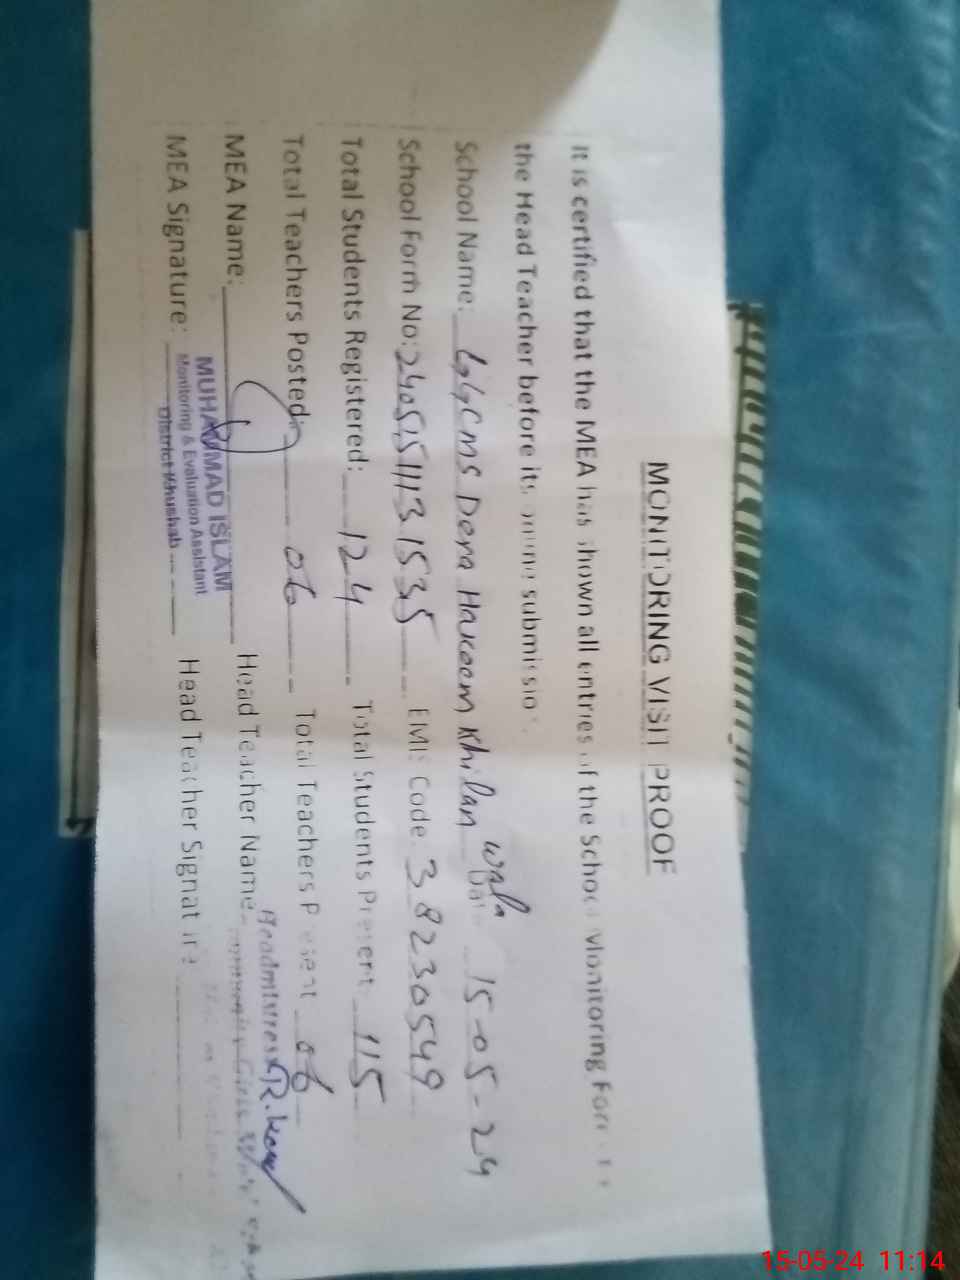 MONITORING VISIT PROOF
It is certified that the MEA has shown all entries of the School Monitoring Form to
the Head Teacher before its online submission.
School Name: GGCMS Dera Hakeem Khilan wala Date 15-05-24
School Form No: 24051511131535 EMIS Code: 38230549
Total Students Registered: 124 Total Students Present: 115
Total Teachers Posted: 06 Total Teachers Present 06
MEA Name: MUHAMMAD ISLAM Head Teacher Name Headmistress
Monitoring & Evaluation Assistant
MEA Signature: District Khushab Head Teacher Signature
15-05-24 11:14